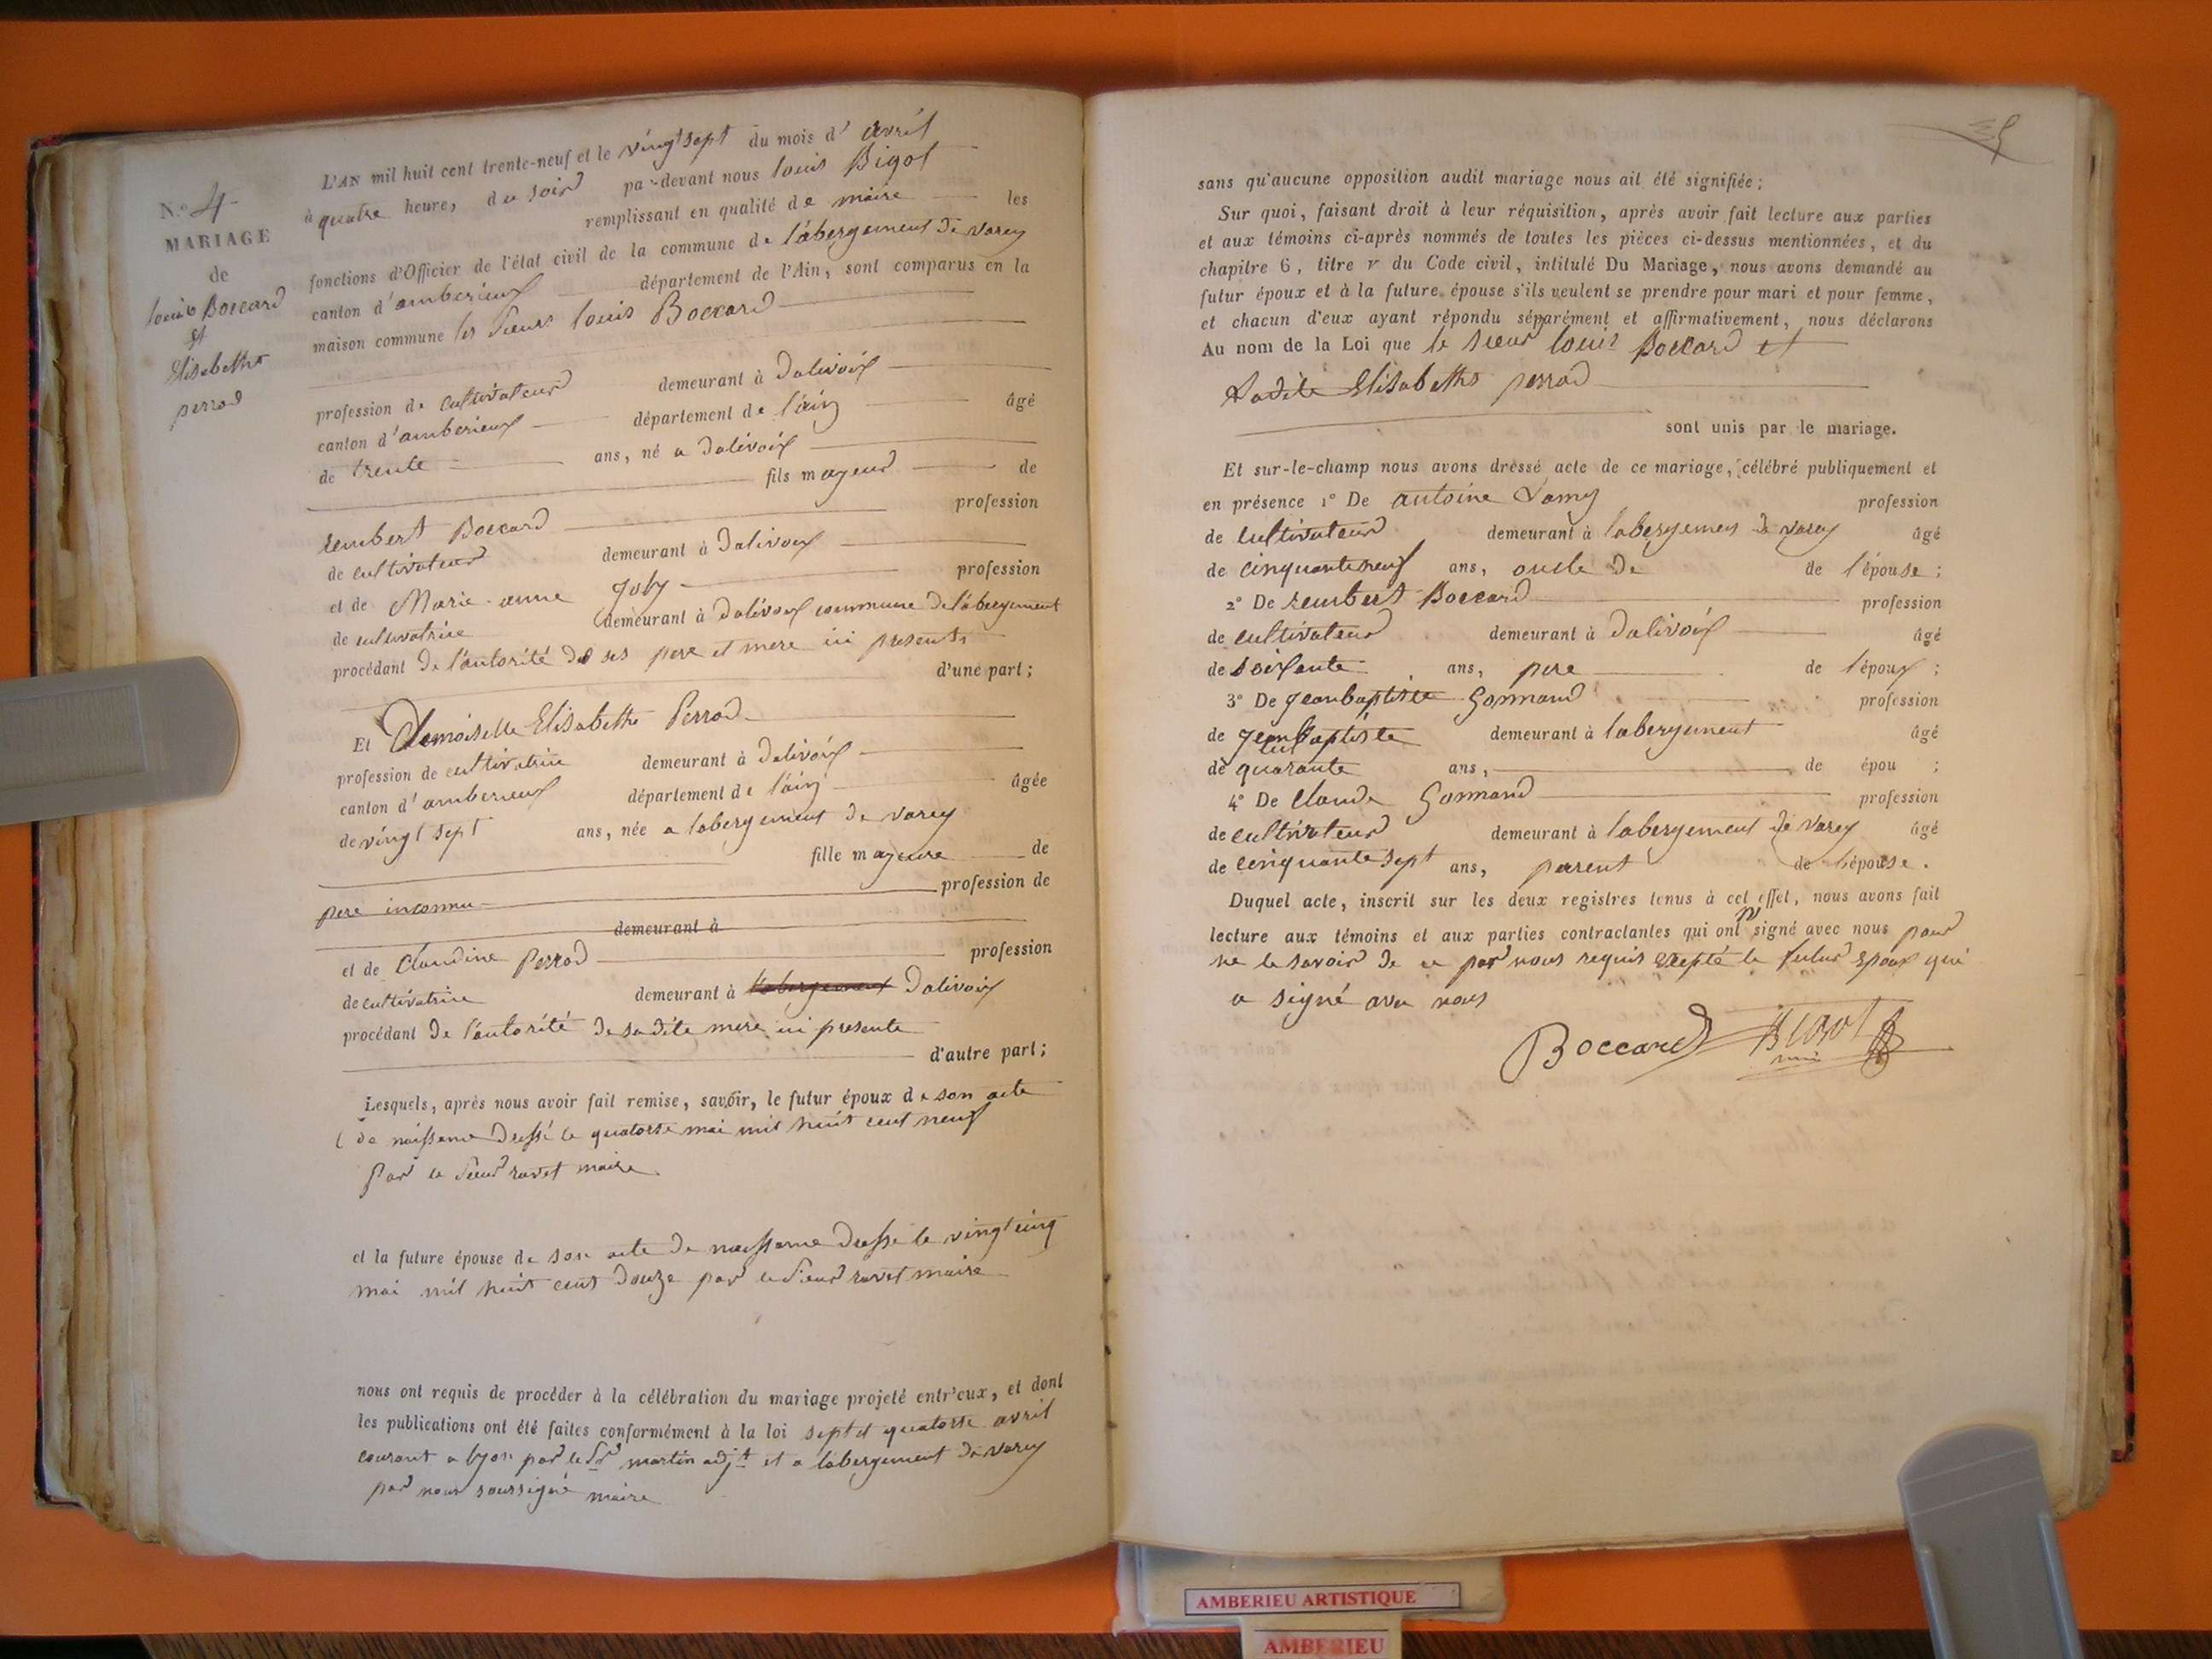 N.o 4
MARIAGE
de
louis Boccard
et
Elisabethe
perrod
L'AN mil huit cent trente-neuf et le vingt sept du mois d' avril
à quatre heures, du soir par-devant nous louis Bigot
remplissant en qualité de maire les
fonctions d'Officier de l'état civil de la commune de l'abergement de varey
canton d'amberieux département de l'Ain, sont comparus en la
maison commune les sieur louis Boccard
profession de cultivateur demeurant à Dalivoix
canton d'amberieux département de l'ain âgé
de trente ans, né a Dalivoix
fils majeur de
rembert Boccard profession
de cultivateur demeurant à Dalivoix
et de Marie-anne Joly profession
de cultivatrice demeurant à Dalivoix commune de l'abergement
procédant de l'autorité de ses pere et mere ici presents
d'une part;
Et Demoiselle Elisabethe Perrod
profession de cultivatrice demeurant à Dalivoix
canton d'amberieux département de l'ain âgée
de vingt sept ans, née a labergement de varey
fille majeure de
pere inconnu profession de
demeurant à
et de Claudine Perrod profession
de cultivatrice demeurant à l'abergement Dalivoix
procédant de l'autorité de sadite mere ici presente
d'autre part;
Lesquels, après nous avoir fait remise, savoir, le futur époux de son acte
de naissance dressé le quatorse mai mil huit cent neuf
par le sieur ravet maire
et la future épouse de son acte de naissance dressé le vingt cinq
mai mil huit cent douze par le sieur ravet maire
nous ont requis de procéder à la célébration du mariage projeté entr'eux, et dont
les publications ont été faites conformément à la loi sept et quatorse avril
courant a lyon par le Sr martin adjt et a labergement de varey
par nous soussigné maire
sans qu'aucune opposition audit mariage nous ait été signifiée;
Sur quoi, faisant droit à leur réquisition, après avoir fait lecture aux parties
et aux témoins ci-après nommés de toutes les pièces ci-dessus mentionnées, et du
chapitre 6, titre V du Code civil, intitulé Du Mariage, nous avons demandé au
futur époux et à la future épouse s'ils veulent se prendre pour mari et pour femme,
et chacun d'eux ayant répondu séparément et affirmativement, nous déclarons
Au nom de la Loi que le sieur louis Boccard et
Ladite Elisabethe perrod
sont unis par le mariage.
Et sur-le-champ nous avons dressé acte de ce mariage, célébré publiquement et
en présence 1o De antoine Lamy profession
de cultivateur demeurant à labergement de varey âgé
de cinquante neuf ans, oncle de de l'épouse;
2o De rembert Boccard profession
de cultivateur demeurant à Dalivoix âgé
de soixante ans, pere de l'époux;
3o De jean baptiste Gormand profession
de jean baptiste demeurant à labergement âgé
de quarante ans, de épou ;
4o De Claude Gormand profession
de cultivateur demeurant à labergement de varey âgé
de cinquante sept ans, parent de l'épouse.
Duquel acte, inscrit sur les deux registres tenus à cet effet, nous avons fait
lecture aux témoins et aux parties contractantes qui ont signé avec nous pour
ne le savoir de ce par nous requis exepté le futur epoux qui
a signé avec nous
Boccard Bigot
AMBERIEU ARTISTIQUE
AMBERIEU